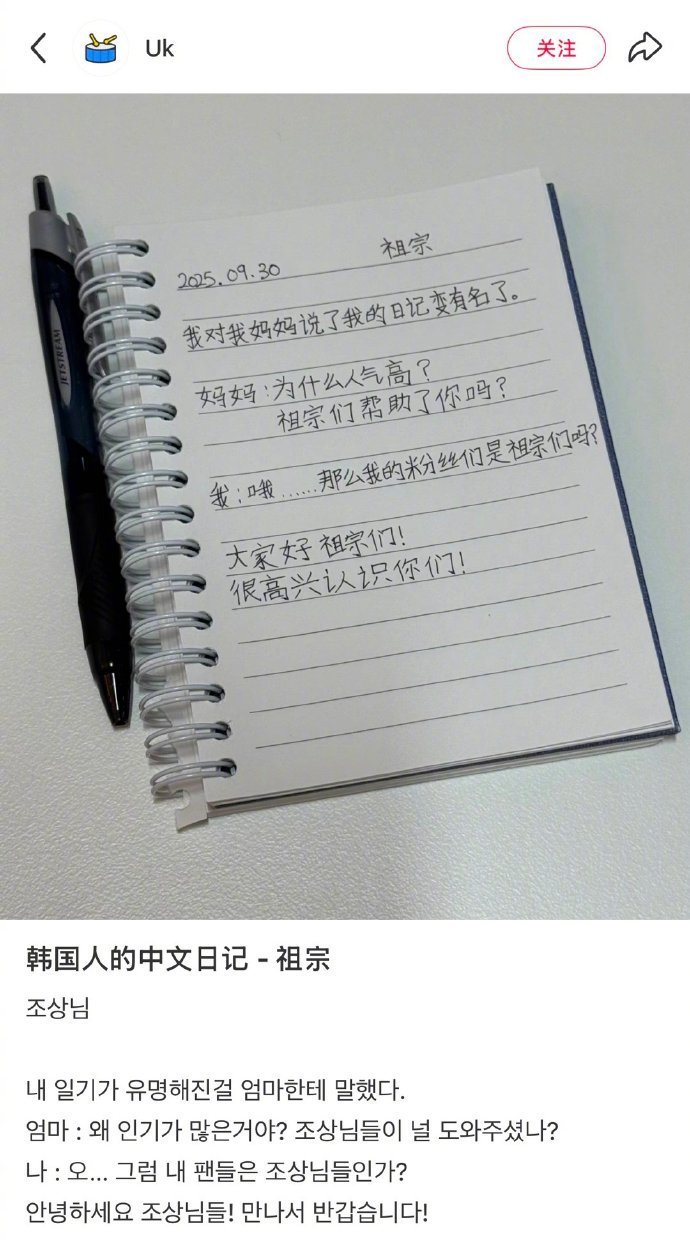 Uk
关注
JETSTREAM
2025.09.30 祖宗
我对我妈妈说了我的日记变有名了。
妈妈:为什么人气高?
祖宗们帮助了你吗?
我:哦……那么我的粉丝们是祖宗们吗?
大家好祖宗们!
很高兴认识你们!
韩国人的中文日记 - 祖宗
조상님
내 일기가 유명해진걸 엄마한테 말했다.
엄마 : 왜 인기가 많은거야? 조상님들이 널 도와주셨나?
나 : 오... 그럼 내 팬들은 조상님들인가?
안녕하세요 조상님들! 만나서 반갑습니다!